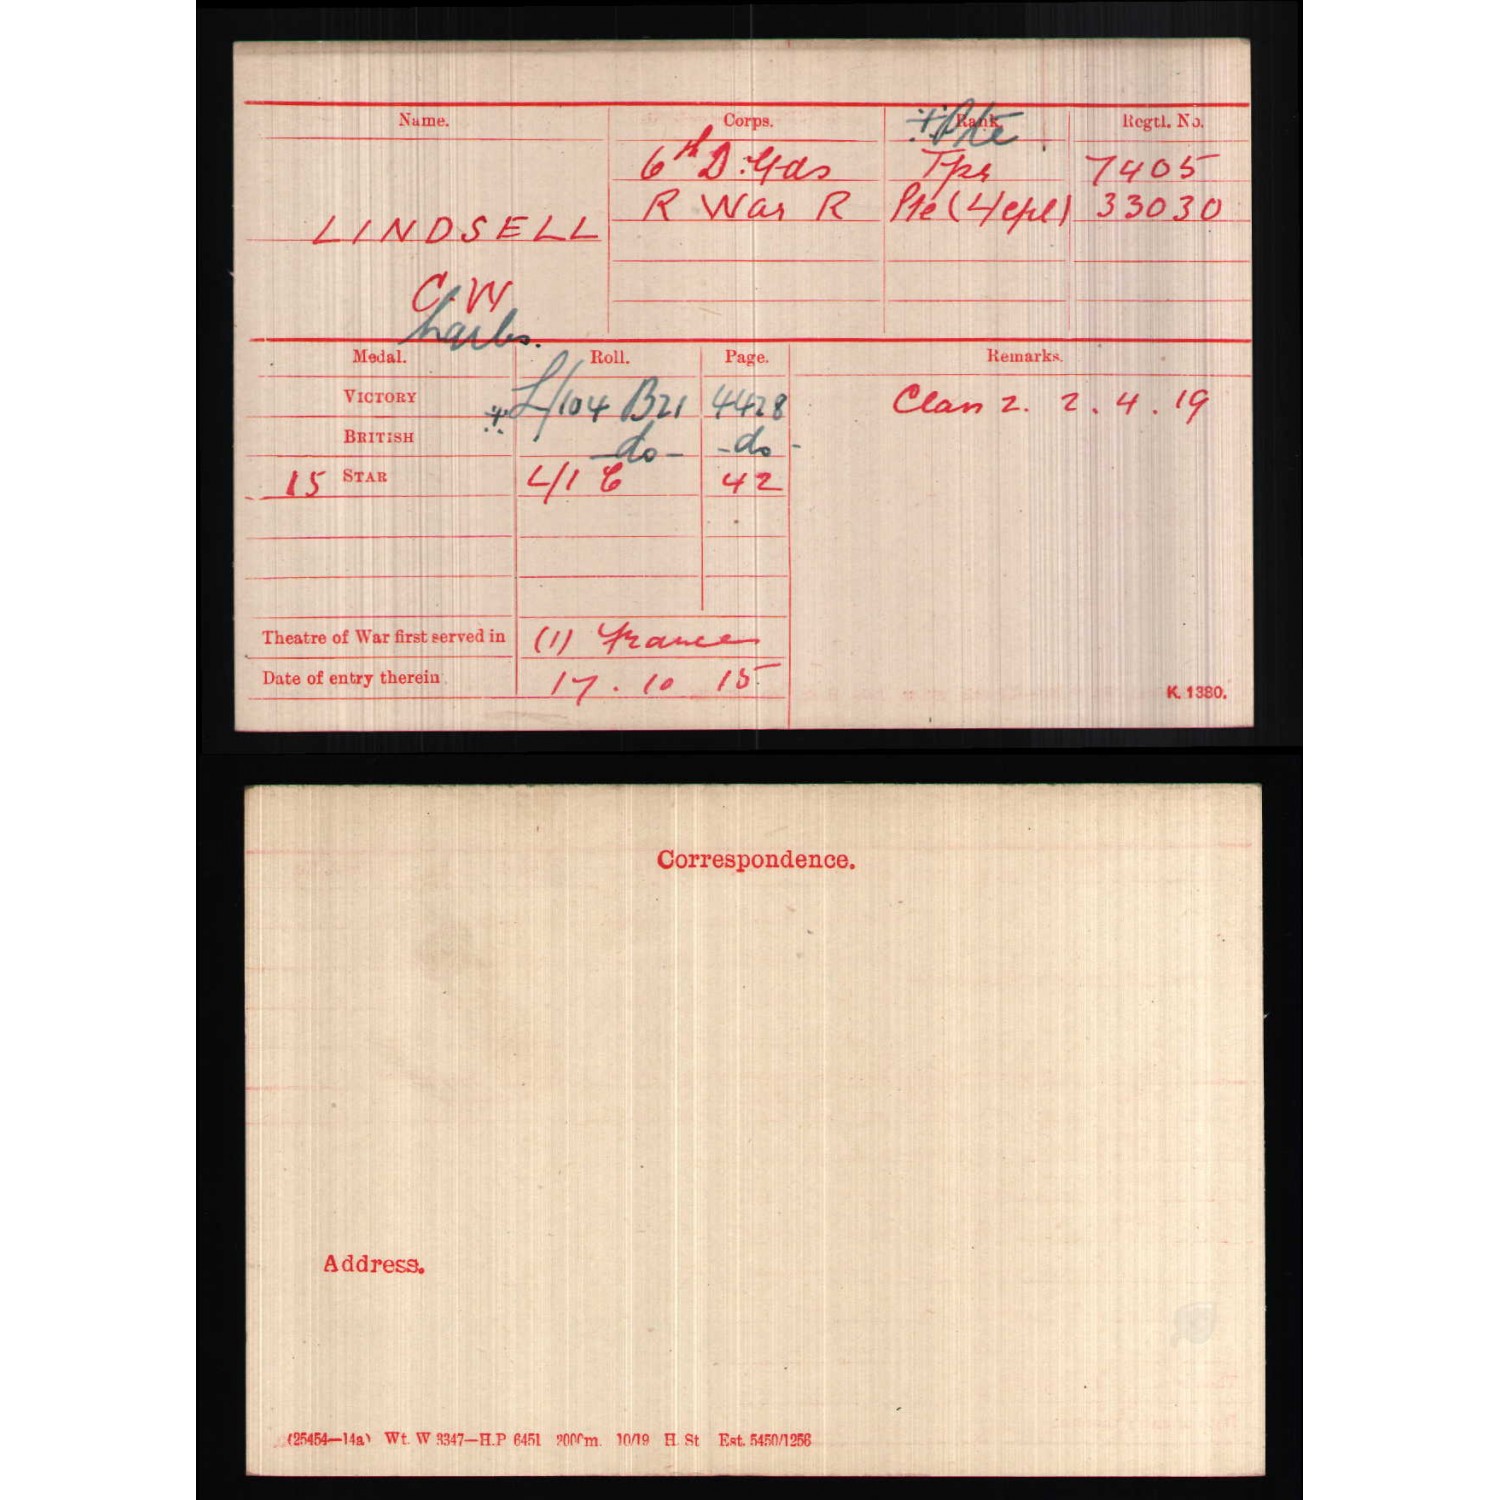 Name. Corps. Rank. Regtl. No.
Pte
6th D. Gds Tpr 7405
R War R Pte (L/Cpl) 33030
LINDSELL
C. W
harles.
Medal. Roll. Page. Remarks.
VICTORY L/104 B21 4428 Class Z. 2.4.19
BRITISH -do- -do-
15 STAR L/1 C 42
Theatre of War first served in (1) France
Date of entry therein 17.10 15
K. 1380.
Correspondence.
Address.
(25454—14a) Wt. W 3347—H.P 6451 2000m. 10/19 H. St Est. 5450/1256